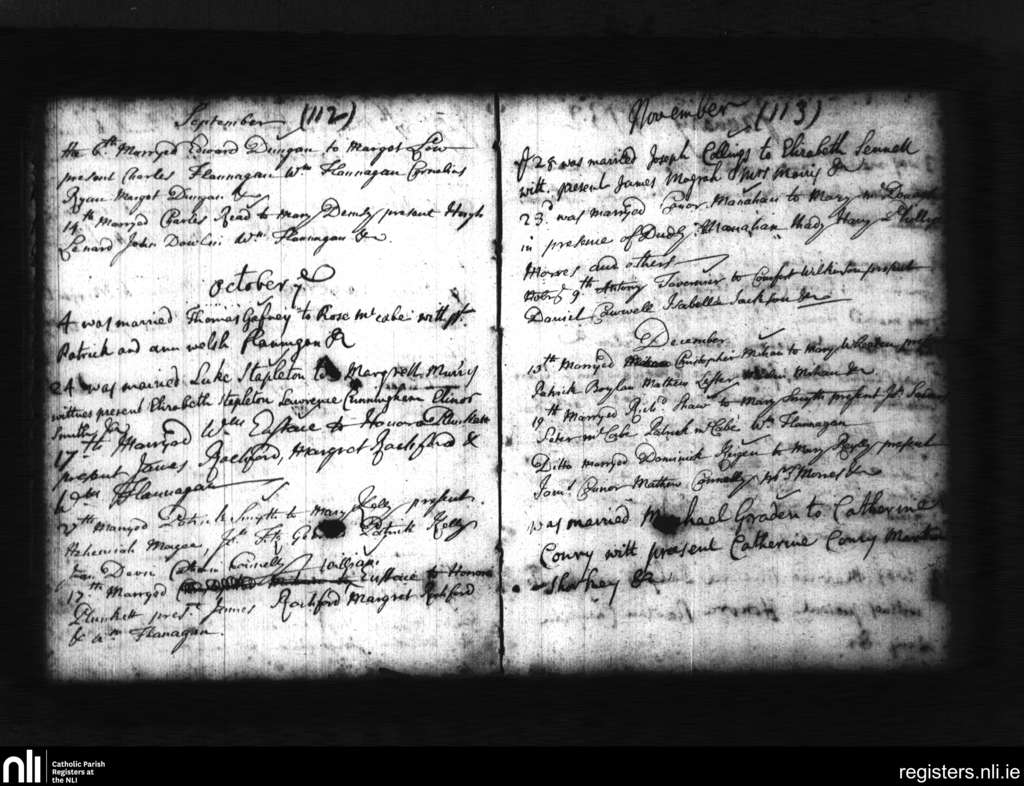 September (112)
the 6th Marryed Edward Dungan to Margot Low
present Charles Flannagan Wm Flannagan Cornelius
Ryan Margot Dungan &c
14th Marryed Charles Read to Mary Demsy present Hugh
Lenard John Dowlin Wm Flannagan &c
October ye
4 was married Thomas Gafney to Rose McCabe with pt
Patrick and ann welsh Flannigan &c
24 was maried Luke Stapleton to Margrett Murrys
wittnes present Elizabeth Stepleton Lawrence Cunningham Elinor
Smith &c
17th Marryed Wm Eustace to Honor Plunkett
present James Rochford, Margret Rochford &
Wm Flannagan
2th Marryed Patrick Smyth to Mary Kelly present
Nehemiah Magee, Patrick Kelly
Devin Connelly
William
17th Marryed Eustace to Honor
Plunkett prest. James Rochford Margret Rochford
& a Wm Flanagan.
November (113)
ye 28 was married Joseph Collings to Elizabeth Lennell
with present James Magrah & Mrs Morris &c
23d was marryed Conor Manahan to Mary
in presence of Dudly Manahan thady Hary
Mowes and others
9th Antony Tavernier to Comfort Wilkinson present
Daniel Curwell Isabella Jackson &c
December
13th Marryed Christopher Mihan to Mary
Patrick Boylan Mathew Lester Mehan &c
19th Marryed Richd Shaw to Mary Smyth present Jos
Peter McCabe Patrick McCabe Wm Flannagan
Ditto marryed Dominick Geigen to Mary Reyly present
Jams Connor Mathew Connelly Mrs Mores &c
was married Michael Graden to Catherine
Conry with present Catherine Conry
Shorkey &c
nli
Catholic Parish
Registers at
the NLI
registers.nli.ie